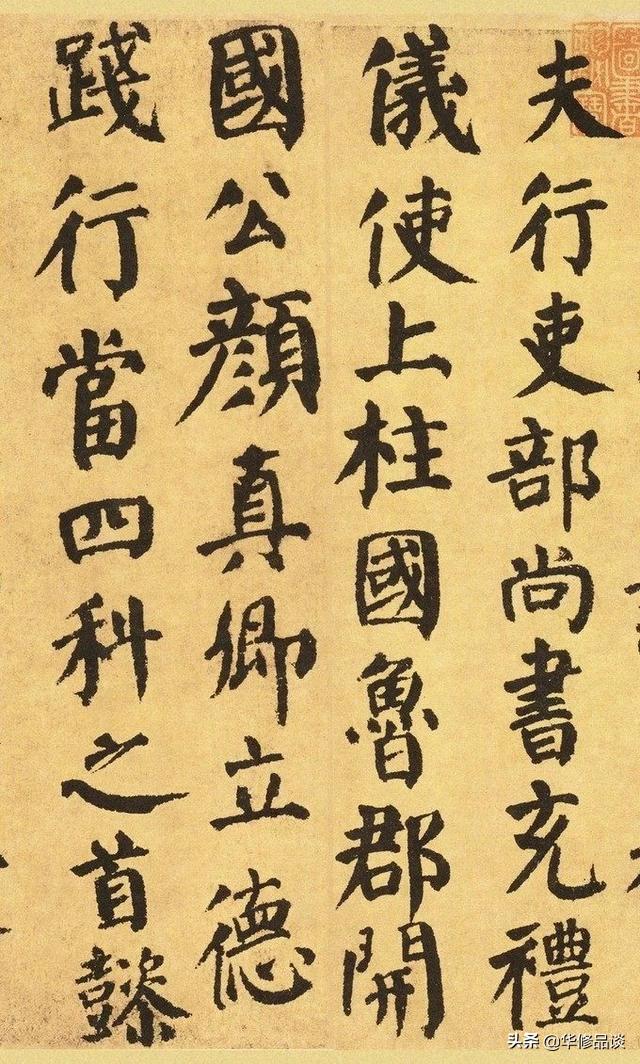 夫行吏部尚書充禮
儀使上柱國魯郡開
國公顏真卿立德
踐行當四科之首懿
头条 @华修品谈